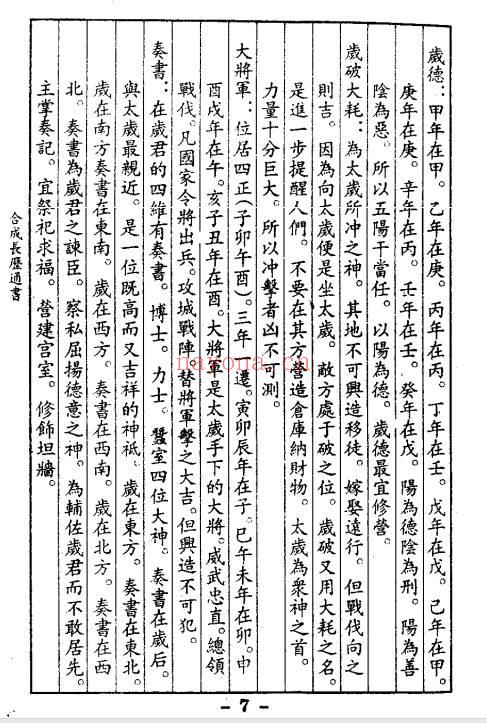 歲德：甲年在甲。乙年在庚。丙年在丙。丁年在壬。戊年在戊。己年在甲。
庚年在庚。辛年在丙。壬年在壬。癸年在戊。陽為德陰為刑。陽為善
陰為惡。所以五陽干當任。以陽為德。歲德最宜修營。
歲破大耗：為太歲所冲之神。其地不可興造移徒。嫁娶遠行。但戰伐向之
則吉。因為向太歲便是坐太歲。敵方處于破之位。歲破又用大耗之名。
是進一步提醒人們。不要在其方營造倉庫納財物。太歲為衆神之首。
力量十分巨大。所以冲擊者凶不可測。
大將軍：位居四正(子卯午酉)。三年一遷。寅卯辰年在子。巳午未年在卯。申
酉戌年在午。亥子丑年在酉。大將軍是太歲手下的大將。威武忠直。總領
戰伐。凡國家令將出兵。攻城戰陣。替將軍擊之大吉。但興造不可犯。
奏書：在歲君的四維有奏書。博士。力士。蠶室四位大神。奏書在歲后。
與太歲最親近。是一位既高而又吉祥的神祇。歲在東方。奏書在東北。
歲在南方奏書在東南。歲在西方。奏書在西南。歲在北方。奏書在西
北。奏書為歲君之諫臣。察私屈揚德意之神。為輔佐歲君而不敢居先。
主掌奏記。宜祭祀求福。營建宫室。修飾坦牆。
合成長歷通書
- 7 -
nayona.cn